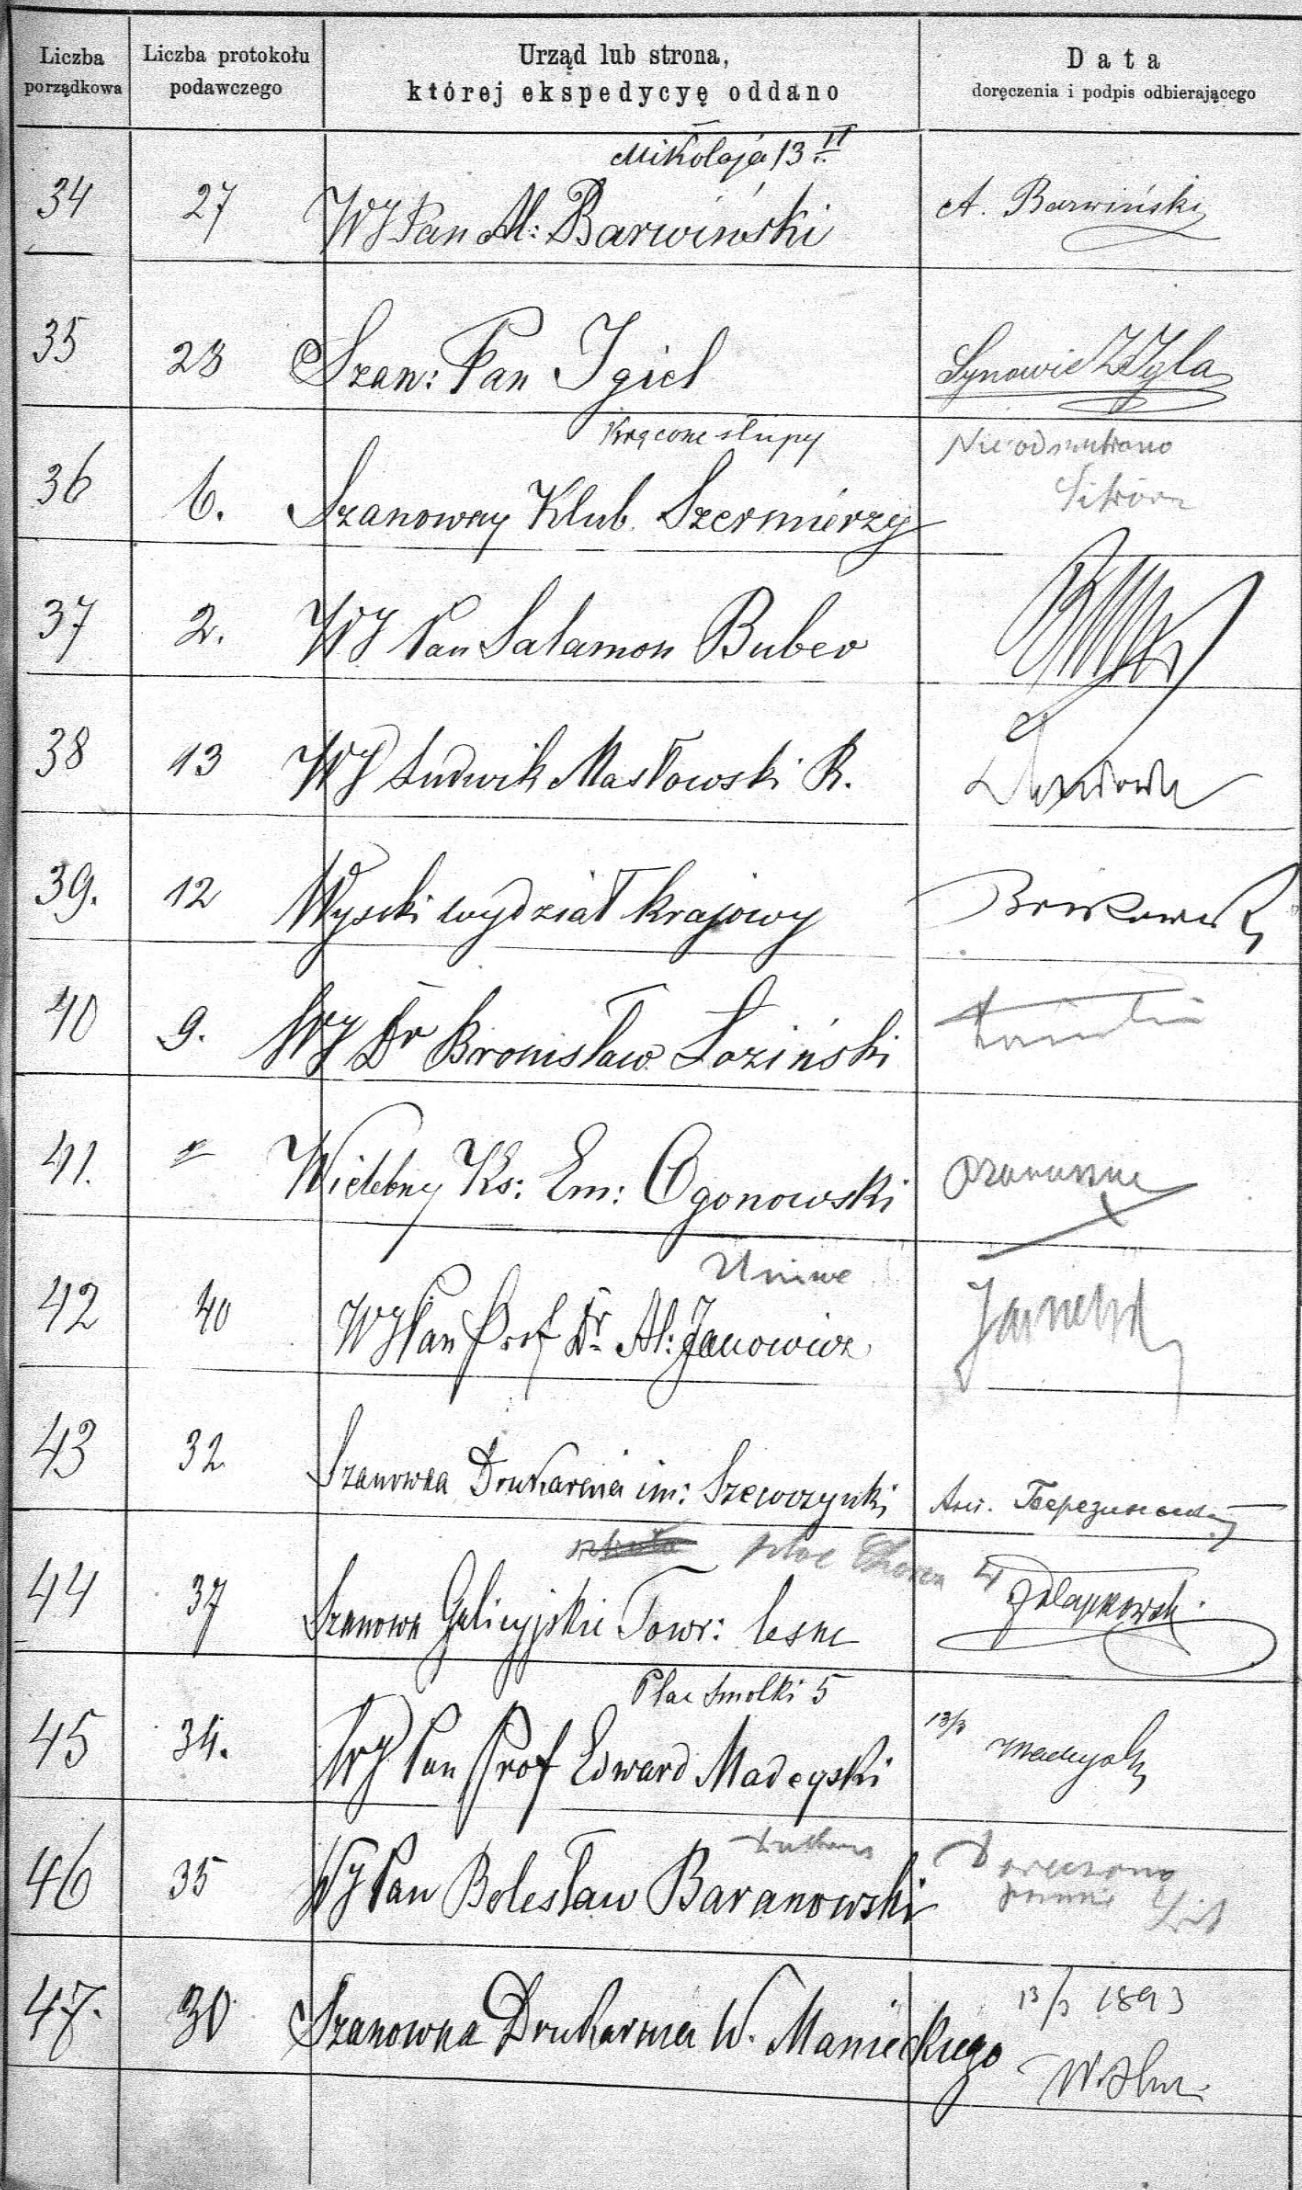 Liczba porządkowa
Liczba protokołu podawczego
Urząd lub strona, której ekspedycyę oddano
Data doręczenia i podpis odbierającego
Mikołaja 13 II
34 27 WJ Pan Al: Barwiński A. Barwiński
35 28 Szan: Pan Igiel Synowie Z Igla
Kręcone słupy
36 6. Szanowny Klub Szermierzy Nie odebrano
37 2. WJ Pan Salamon Buber
38 13 WJ Ludwik Masłowski R.
39. 12 Wysoki wydział krajowy
40 9. WJ Dr Bronisław Łoziński
41. Wielebny Ks: Em: Ogonowski
Uniwe
42 40 WJ Pan Prof Dr Al: Janowicz
43 32 Szanowna Drukarnia im: Szewczynki
plac
44 37 Szanown Galicyjskie Towr: lesne
Plac Smolki 5
45 34. WJ Pan Prof Edward Madeyski 13/3 Madeyski
46 35 WJ Pan Bolesław Baranowski Doręczono
47. 30 Szanowna Drukarnia W. Manieckiego 13/3 1893